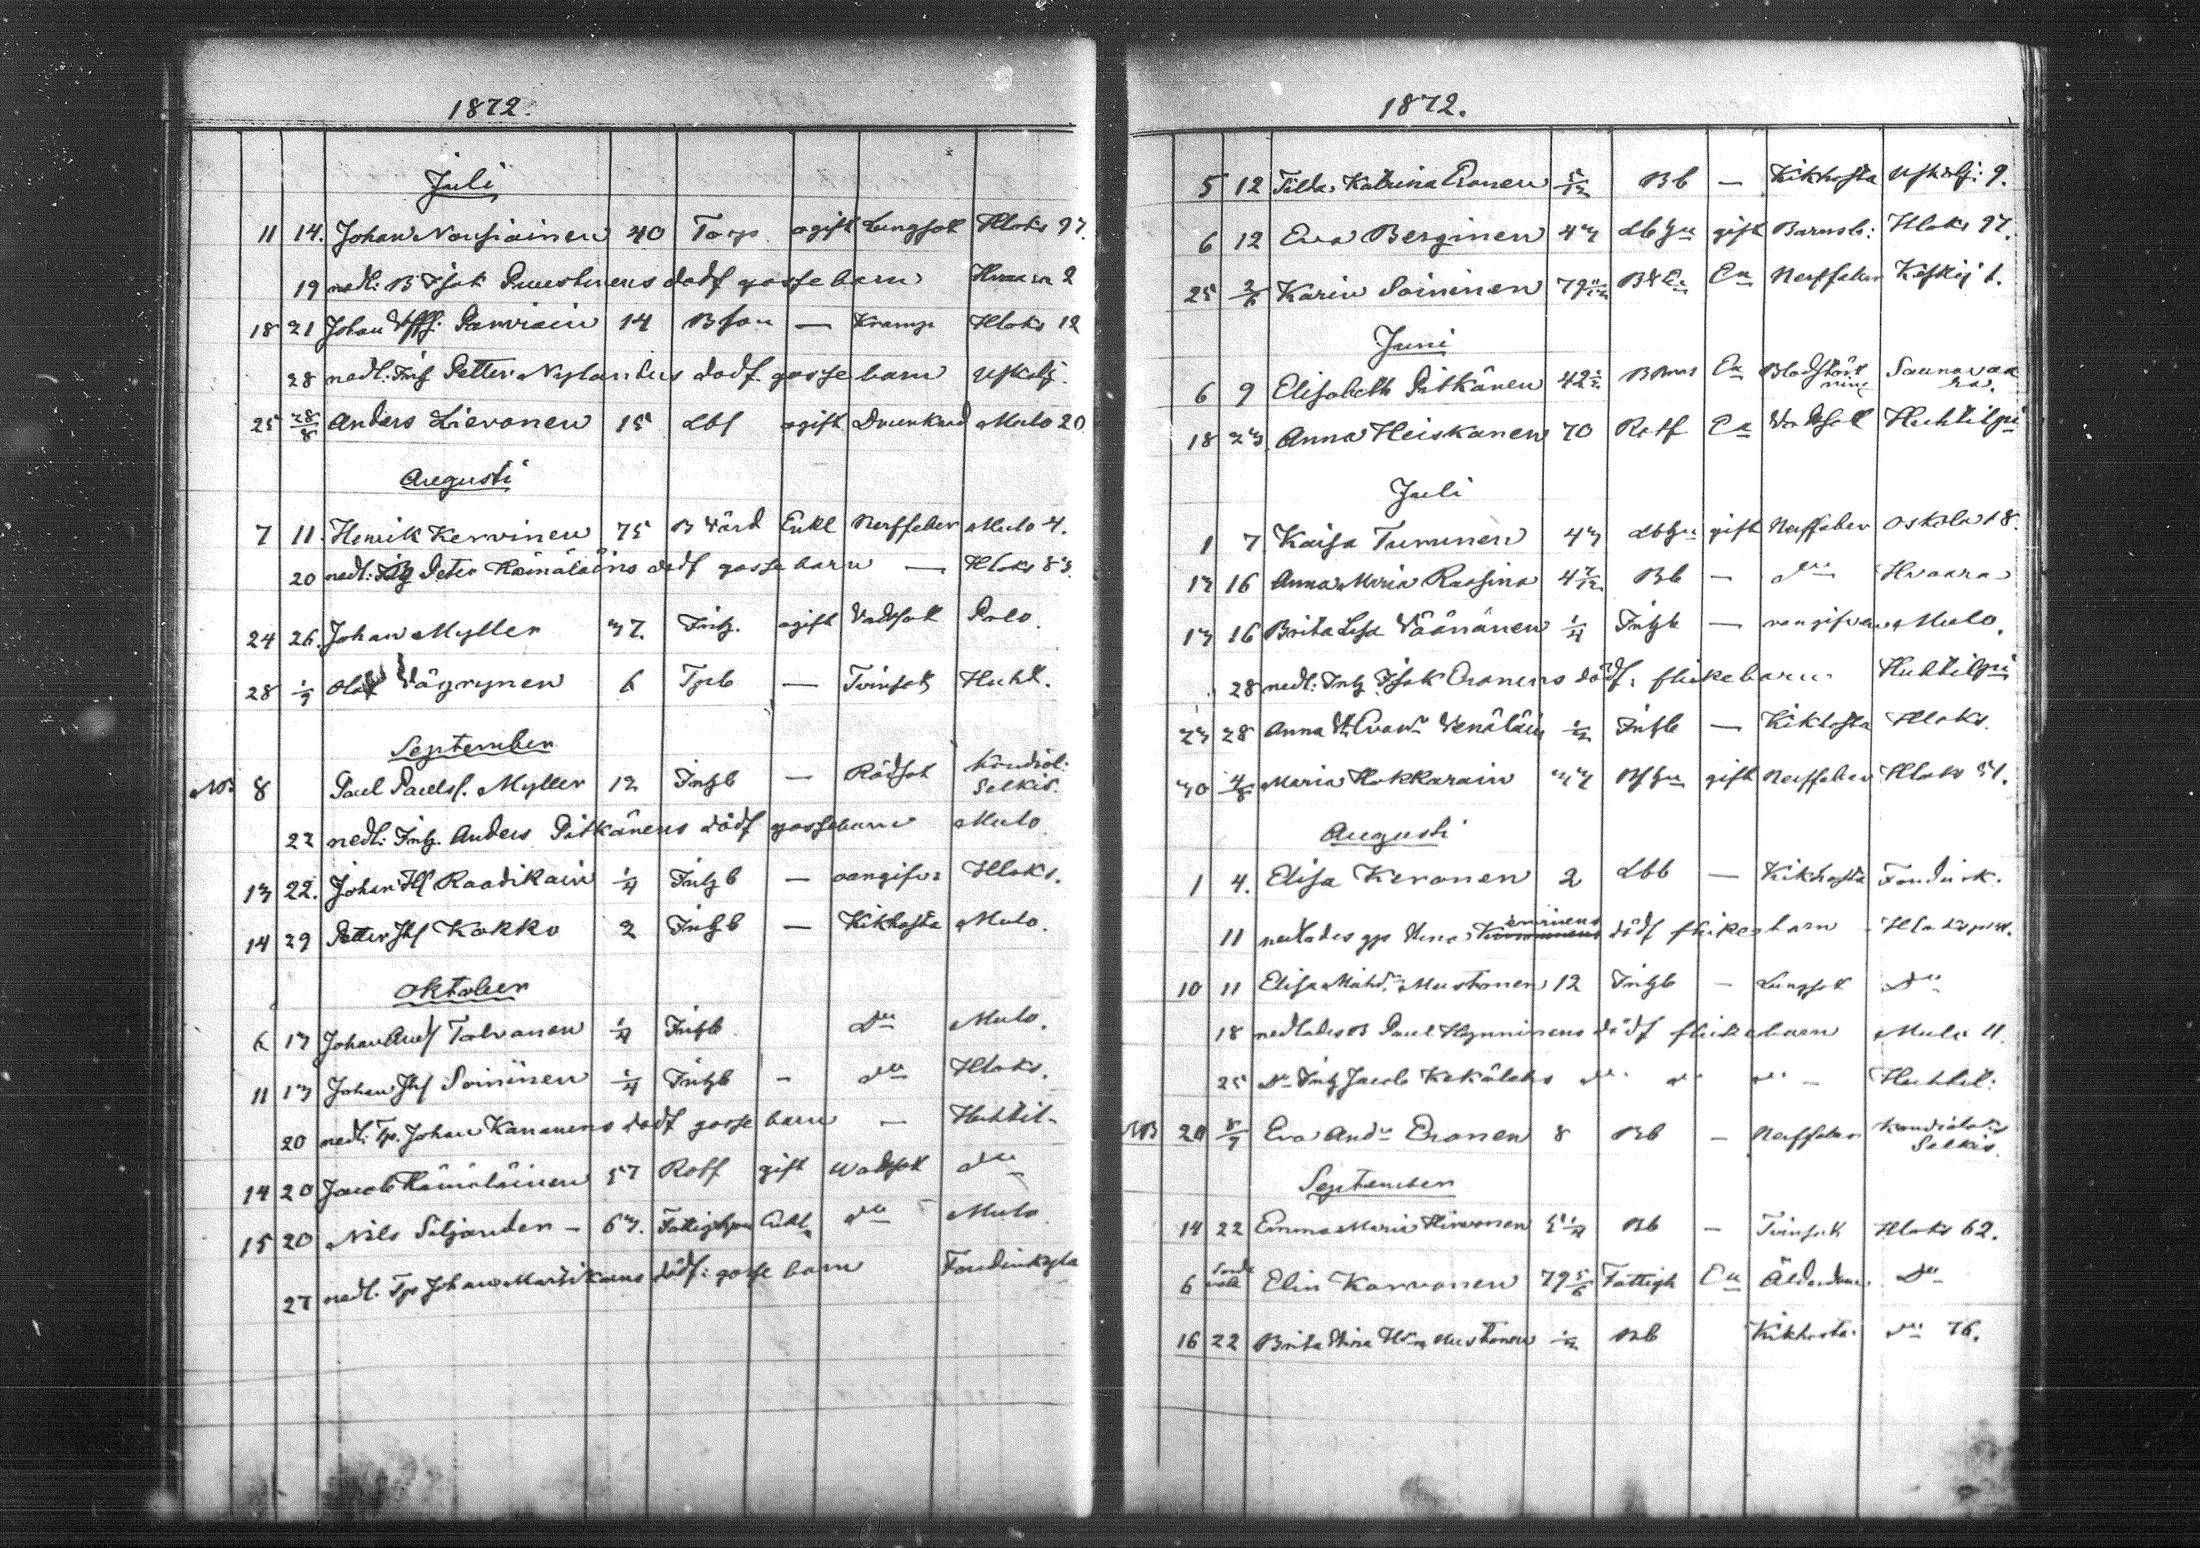 1872.
Juli
11 14. Johan Nousiainen 40 Torp. ogift Lungsot Hloks 97.
19 nedl: B Isak Puustinens dödf gossebarn Hvaara 2
18 21 Johan Parviain 14 Bson — Kramp Hloks 12
28 nedl: Inh Petter Nylanders dödf. gossebarn Uskalj.
25 28/8 Anders Lievonen 15 Lbs ogift Drunknad Mulo 20
Augusti
7 11. Henrik Kervinen 75 B Värd Enkl Nerffeber Mulo 4.
20 nedl: Inh Peter Hämäläins dödf gossebarn — Hloks 83.
24 26. Johan Myller 37. Inh. ogift Vattsot Polo.
28 1/9 Olof Väyrynen 6 Tpb — Tvinsot Huht.
September
NB 8 Paul Paulsf. Myller 12 Inhb — Rödsot Kondiol: Selkis.
22 nedl: Inh. Anders Pitkänens dödf gossebarn Mulo
13 22. Johan Raadikain 1/4 Inhb — oangifv: Hloks.
14 29 Petter Kokko 2 Inhb — Kikhosta Mulo.
Oktober
6 13 Johan Andf Tolvanen 1/4 Inhb Do Mulo.
11 13 Johan Soininen 1/4 Inhb - Do Hloks.
20 nedl: Tp. Johan Kananens dödf gossebarn — Huhtil.
14 20 Jacob Hämäläinen 57 Rotf gift Vattsot Do
15 20 Nils Siljander - 63. Fattighjon Enkl Do Mulo
27 nedl. Tp Johan Martikains dödf: gossebarn Fondinkyla
1872.
5 12 Tilda Katrina Eronen 5/12 Bb — Kikhosta Uskalj: 9.
6 12 Eva Berginen 43 Lbhu gift Barnsb: Hloks 97.
25 2/6 Karin Soininen 79 Ea Nerffeber Keskij 1.
Juni
6 9 Elisabeth Pitkänen 42 Ea Blodstörtning Saunavaara.
18 23. Anna Heiskanen 70 Rotf Ea Vattsot Huhtilpi
Juli
1 7. Kaisa Turunen 43 Lbhu gift Nerffeber Oskola 18.
13 16 Anna Maria Raasina 4 7/12 Bb — Do Hvaara
13 16 Brita Lisa Väänänen 1/4 Inhb — oangifven Mulo.
28 nedl: Inh Isak Eronens dödf. flickebarn. Huhtilpi
23 28 Anna Venäläin Inhb — Kikhosta Hloks.
30 4/8 Maria Hokkarain 33 gift Nerffeber Hloks 51.
Augusti
1 4. Elisa Keronen 2 Lbb — Kikhosta Fondink.
11 nedlades dödf flickebarn
10 11 Elisa Mustonen 12 Inhb — Lungsot Do
18 nedlades B Paul Hynninens dödf flickebarn Mulo 11.
25 Do Inh Jacob Kekäläins Do Do Do — Huhtil:
NB 20 8/9 Eva Eronen 8 Bb — Nerffeber Kondiola Selkis.
September
14 22 Emma Maria Hirvonen 5 1/4 Bb — Tvinsot Hloks 62.
6 Elin Karvonen 79 5/6 Fattigh Ea Ålderdom Do
16 22 Brita Stina Mustonen Bb Kikhosta. Do 76.